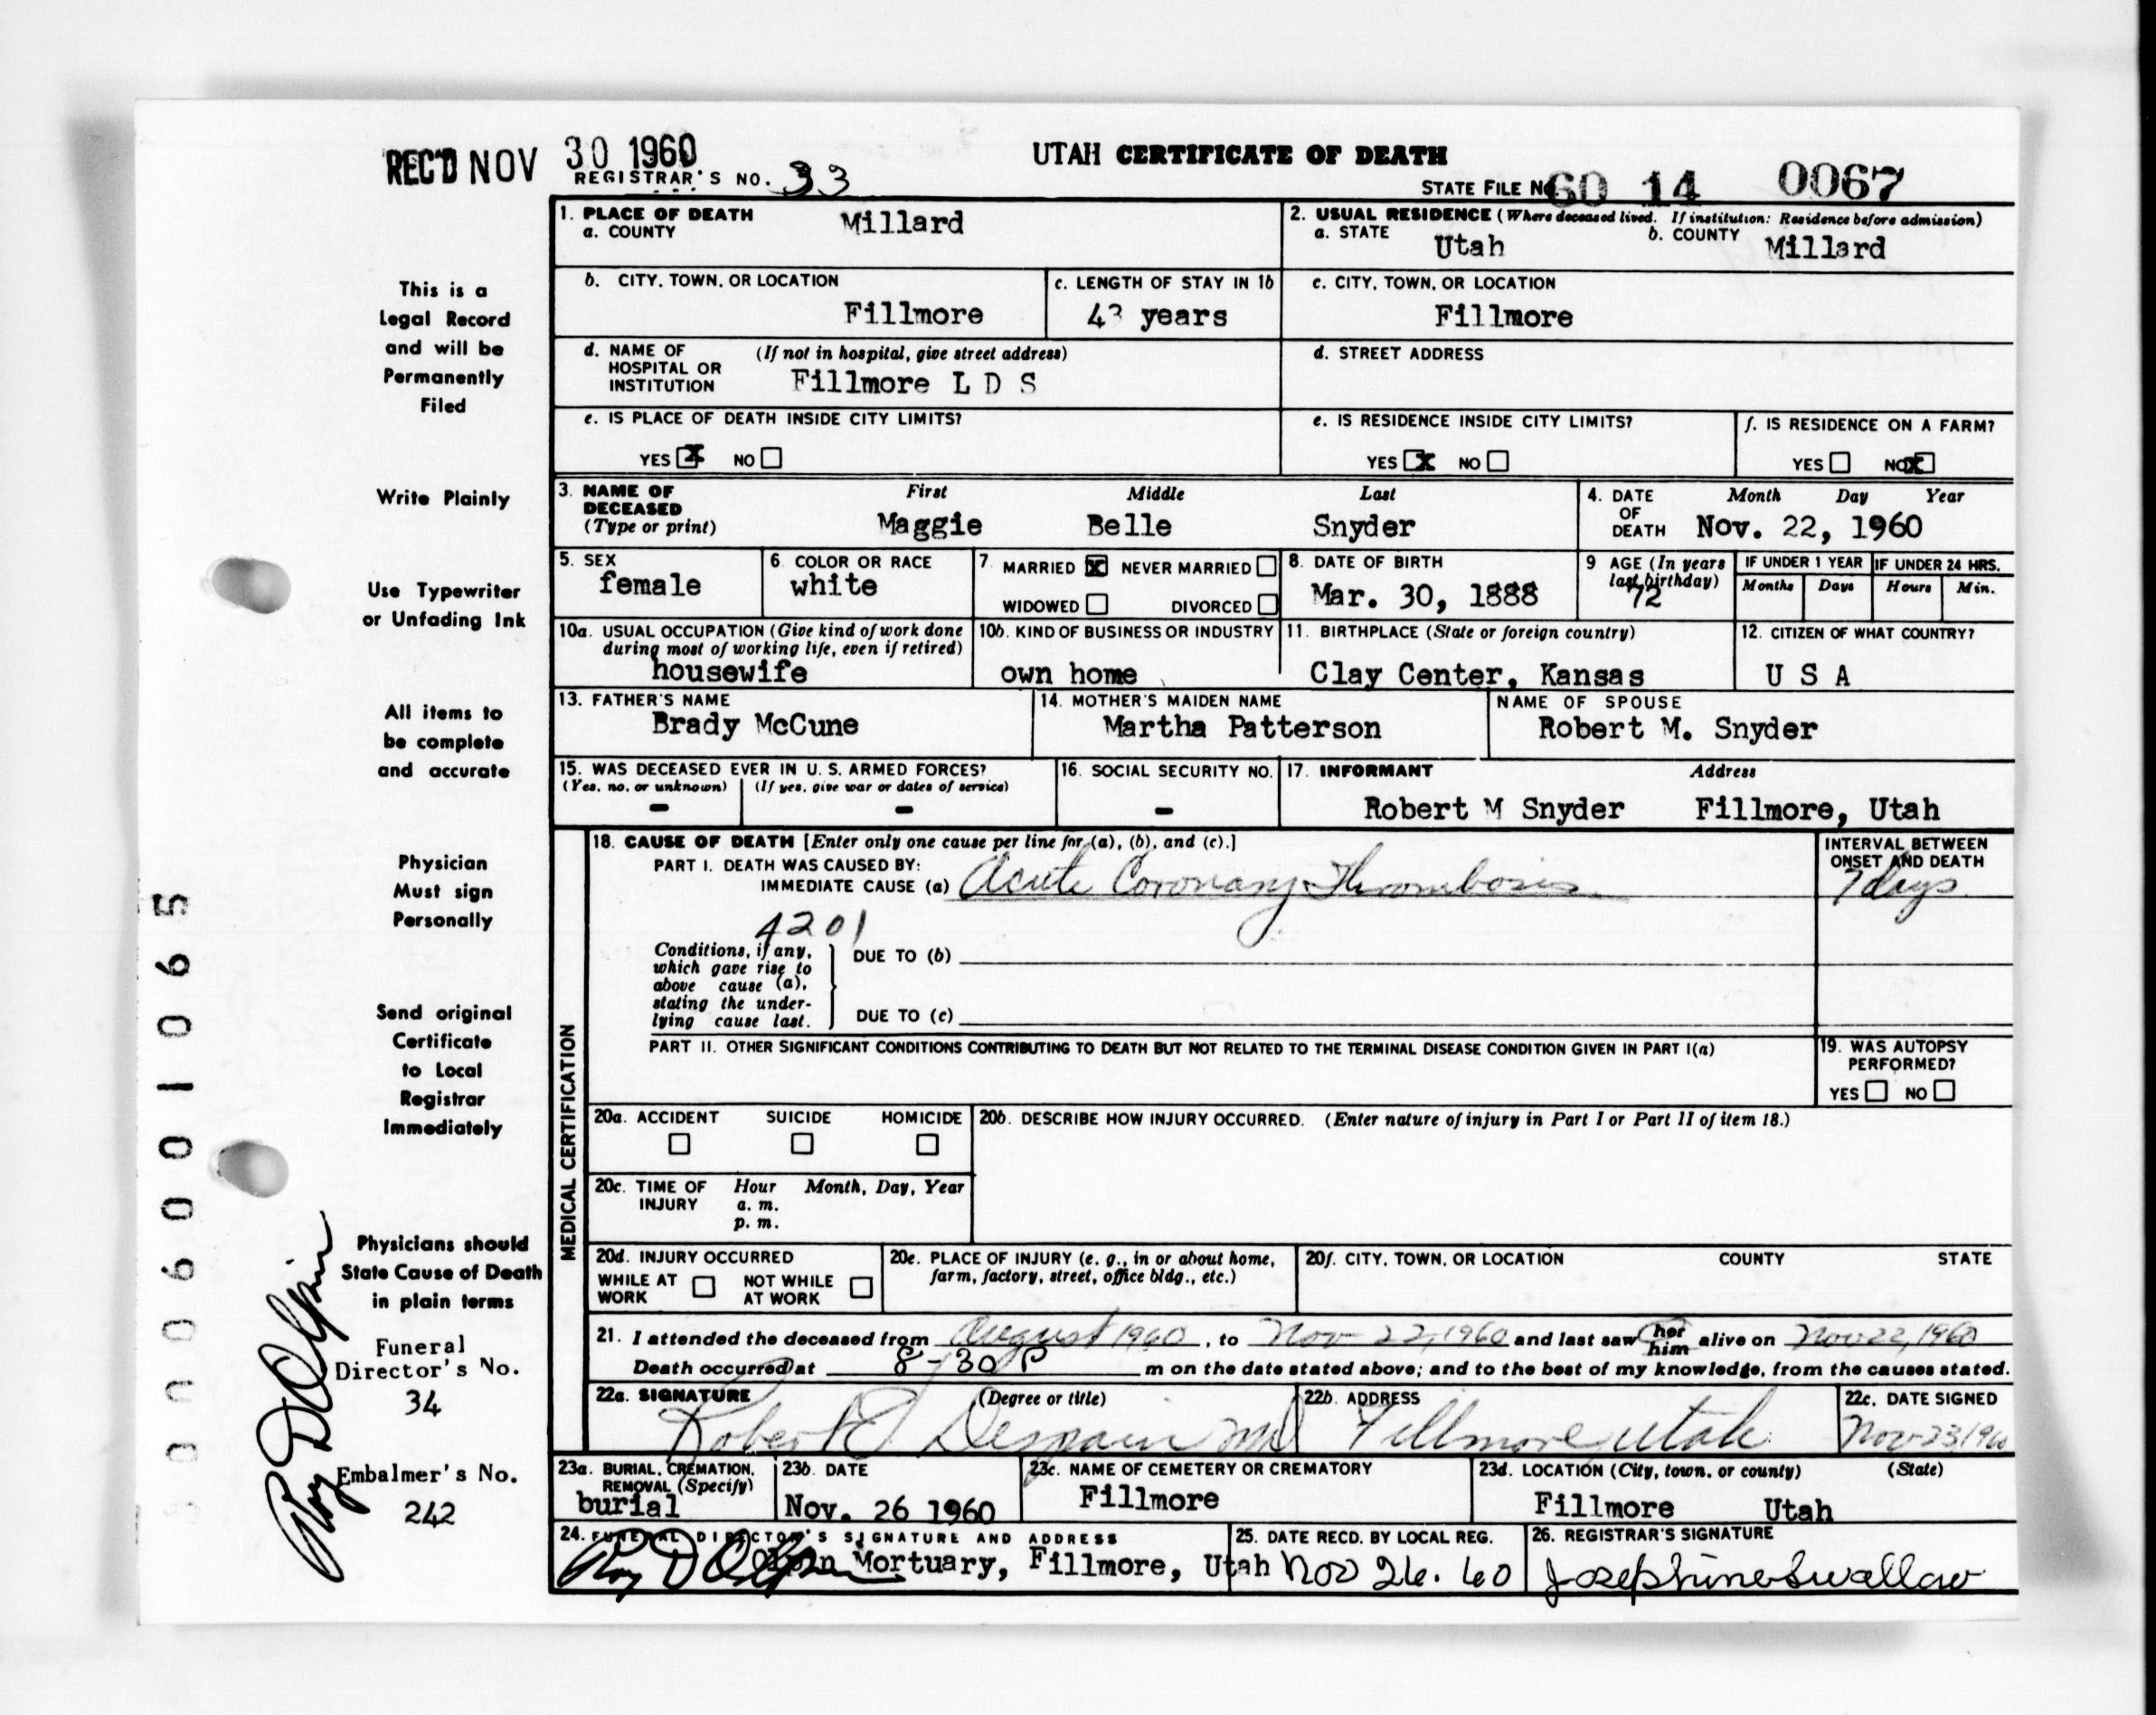 REC'D NOV 30 1960
UTAH CERTIFICATE OF DEATH
REGISTRAR'S NO. 33
STATE FILE NO 60 14 0067
1. PLACE OF DEATH
a. COUNTY Millard
2. USUAL RESIDENCE (Where deceased lived. If institution: Residence before admission)
a. STATE Utah b. COUNTY Millard
b. CITY, TOWN, OR LOCATION
Fillmore
c. LENGTH OF STAY IN 1b
43 years
c. CITY, TOWN, OR LOCATION
Fillmore
d. NAME OF HOSPITAL OR INSTITUTION (If not in hospital, give street address)
Fillmore L D S
d. STREET ADDRESS
e. IS PLACE OF DEATH INSIDE CITY LIMITS?
YES X NO
e. IS RESIDENCE INSIDE CITY LIMITS?
YES X NO
f. IS RESIDENCE ON A FARM?
YES NO X
3. NAME OF DECEASED (Type or print)
First Middle Last
Maggie Belle Snyder
4. DATE OF DEATH Month Day Year
Nov. 22, 1960
5. SEX
female
6. COLOR OR RACE
white
7. MARRIED X NEVER MARRIED
WIDOWED DIVORCED
8. DATE OF BIRTH
Mar. 30, 1888
9 AGE (In years last birthday)
72
IF UNDER 1 YEAR IF UNDER 24 HRS.
Months Days Hours Min.
10a. USUAL OCCUPATION (Give kind of work done during most of working life, even if retired)
housewife
10b. KIND OF BUSINESS OR INDUSTRY
own home
11. BIRTHPLACE (State or foreign country)
Clay Center, Kansas
12. CITIZEN OF WHAT COUNTRY?
U S A
13. FATHER'S NAME
Brady McCune
14. MOTHER'S MAIDEN NAME
Martha Patterson
NAME OF SPOUSE
Robert M. Snyder
15. WAS DECEASED EVER IN U. S. ARMED FORCES?
(Yes, no, or unknown) (If yes, give war or dates of service)
- -
16. SOCIAL SECURITY NO.
-
17. INFORMANT Address
Robert M Snyder Fillmore, Utah
MEDICAL CERTIFICATION
18. CAUSE OF DEATH [Enter only one cause per line for (a), (b), and (c).]
PART I. DEATH WAS CAUSED BY:
IMMEDIATE CAUSE (a) Acute Coronary Thrombosis
INTERVAL BETWEEN ONSET AND DEATH
7 days
4201
Conditions, if any, which gave rise to above cause (a), stating the underlying cause last.
DUE TO (b)
DUE TO (c)
PART II. OTHER SIGNIFICANT CONDITIONS CONTRIBUTING TO DEATH BUT NOT RELATED TO THE TERMINAL DISEASE CONDITION GIVEN IN PART I(a)
19. WAS AUTOPSY PERFORMED?
YES NO
20a. ACCIDENT SUICIDE HOMICIDE
20b. DESCRIBE HOW INJURY OCCURRED. (Enter nature of injury in Part I or Part II of item 18.)
20c. TIME OF INJURY Hour Month, Day, Year
a. m.
p. m.
20d. INJURY OCCURRED
WHILE AT WORK NOT WHILE AT WORK
20e. PLACE OF INJURY (e. g., in or about home, farm, factory, street, office bldg., etc.)
20f. CITY, TOWN, OR LOCATION COUNTY STATE
21. I attended the deceased from August 1960, to Nov 22, 1960 and last saw her him alive on Nov 22, 1960
Death occurred at 8-30 P m on the date stated above; and to the best of my knowledge, from the causes stated.
22a. SIGNATURE (Degree or title)
Robert E Despain MD
22b. ADDRESS
Fillmore, Utah
22c. DATE SIGNED
Nov-23,1960
23a. BURIAL, CREMATION, REMOVAL (Specify)
burial
23b. DATE
Nov. 26 1960
23c. NAME OF CEMETERY OR CREMATORY
Fillmore
23d. LOCATION (City, town, or county) (State)
Fillmore Utah
24. FUNERAL DIRECTOR'S SIGNATURE AND ADDRESS
Roy D Olpin Mortuary, Fillmore, Utah
25. DATE RECD. BY LOCAL REG.
Nov 26. 60
26. REGISTRAR'S SIGNATURE
Josephine Swallow
This is a
Legal Record
and will be
Permanently
Filed
Write Plainly
Use Typewriter
or Unfading Ink
All items to
be complete
and accurate
Physician
Must sign
Personally
Send original
Certificate
to Local
Registrar
Immediately
Physicians should
State Cause of Death
in plain terms
Funeral
Director's No.
34
Embalmer's No.
242
Roy D Olpin